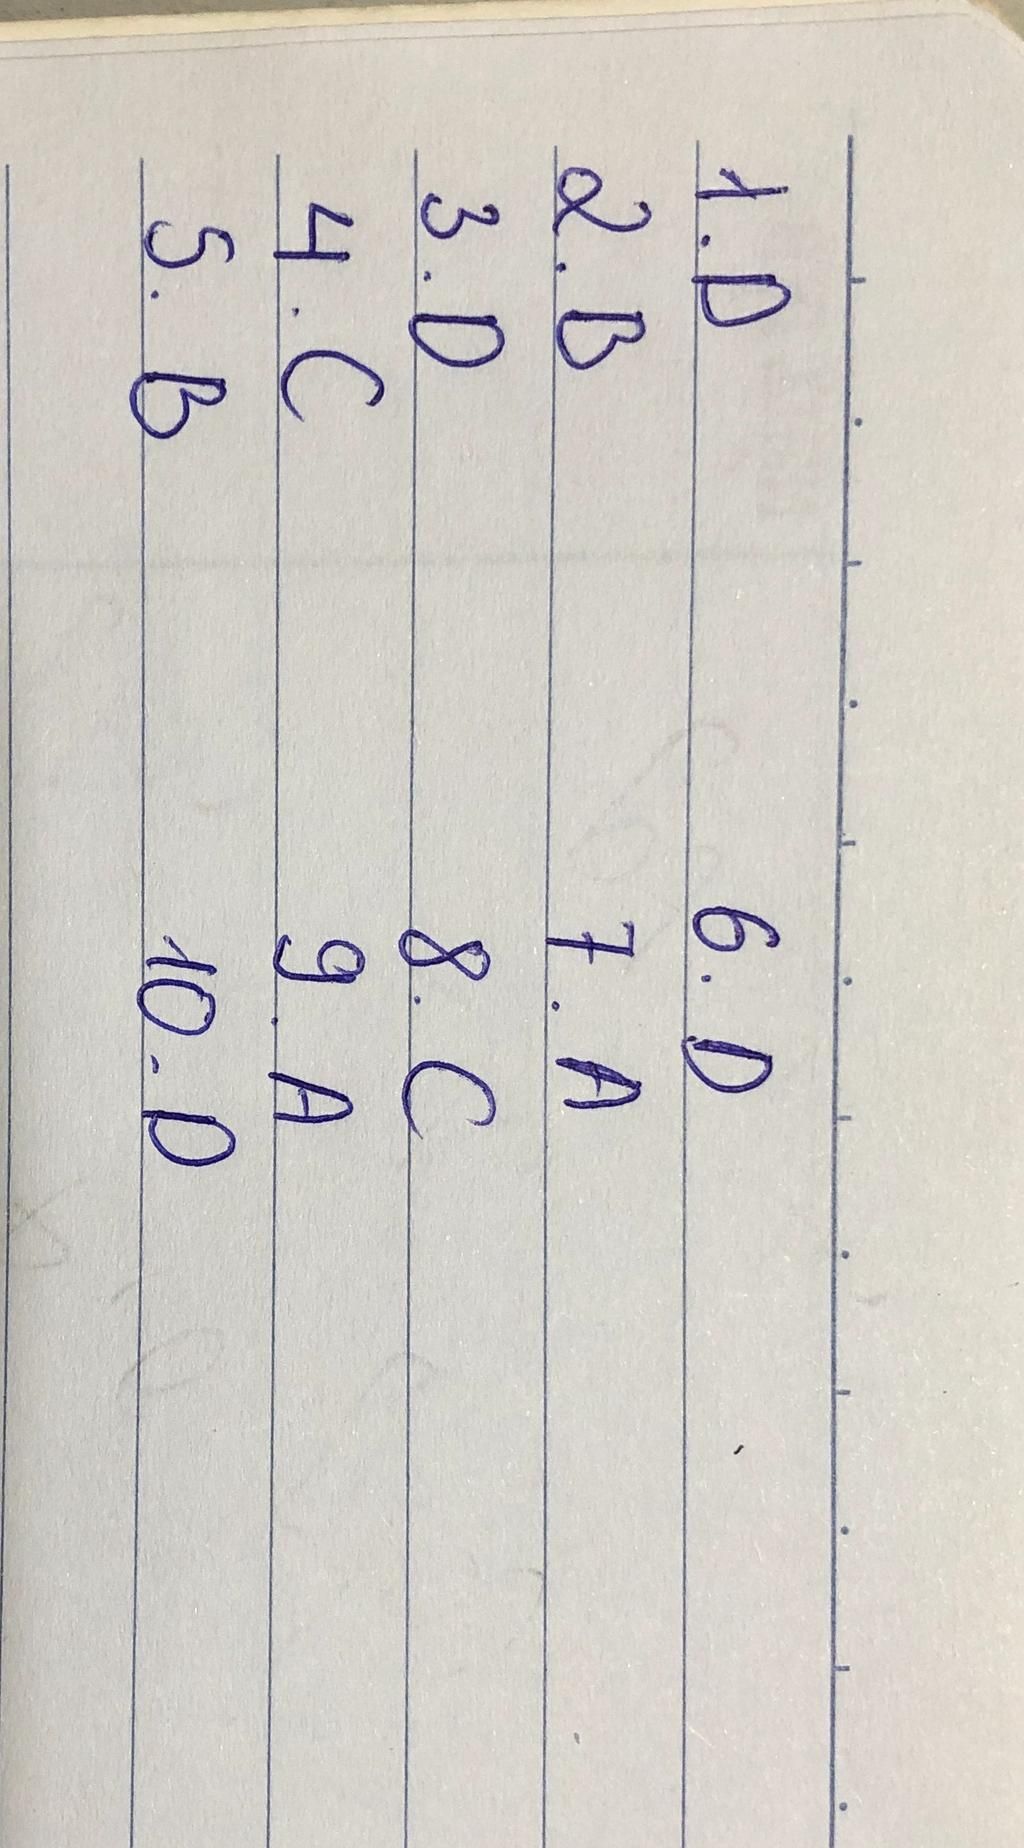 1. D 6. D
2. B 7. A
3. D 8. C
4. C 9. A
5. B 10. D